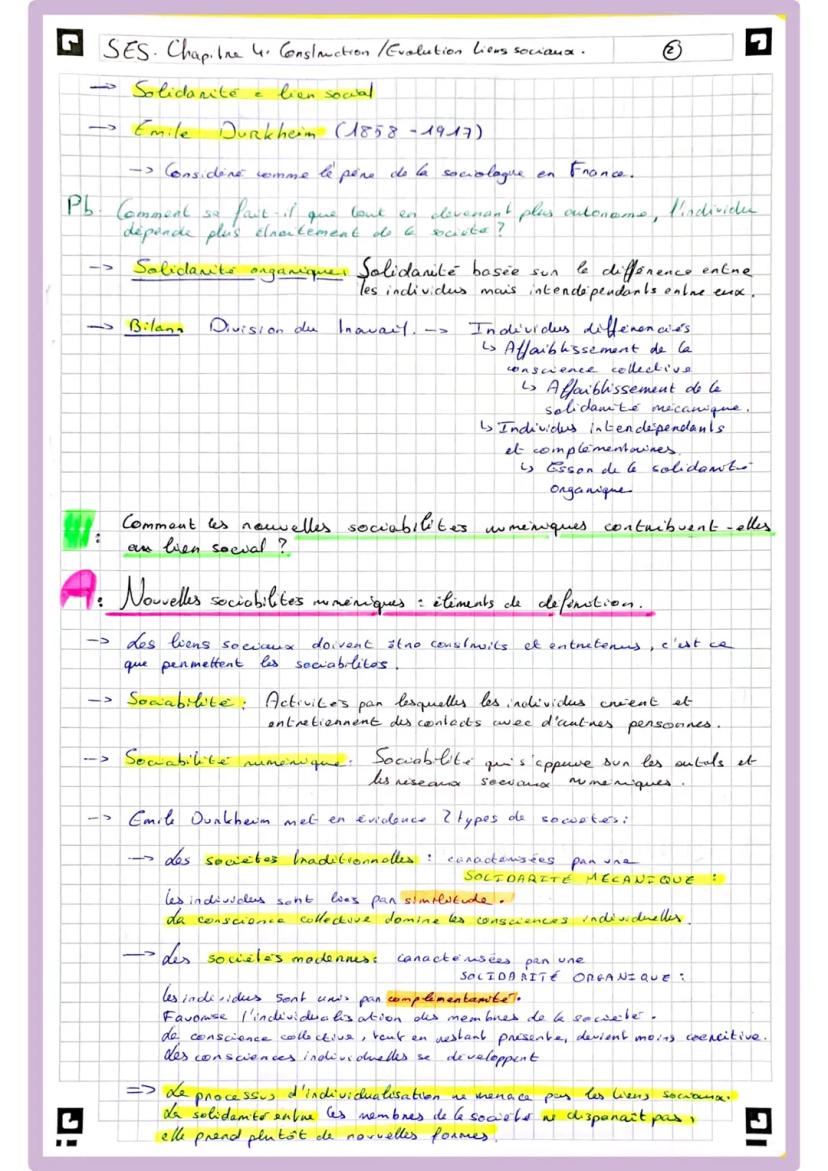 SES. Chapitre 4: Construction / Evolution liens sociaux. ②
→ Solidarité = lien social
→ Emile Durkheim (1858 - 1917)
→ Considéré comme le père de la sociologue en France.
Pb. Comment se fait-il que tout en devenant plus autonome, l'individu
dépende plus étroitement de la société ?
→ Solidarité organique: Solidarité basée sur la différence entre
les individus mais interdépendants entre eux.
→ Bilan: Division du travail. → Individus différenciés
↳ Affaiblissement de la
conscience collective
↳ Affaiblissement de la
solidarité mécanique.
↳ Individus interdépendants
et complémentaires.
↳ Essor de la solidarité
organique
III: Comment les nouvelles sociabilités numériques contribuent-elles
au lien social ?
A: Nouvelles sociabilités numériques : éléments de définition.
→ Les liens sociaux doivent être construits et entretenus, c'est ce
que permettent les sociabilités.
→ Sociabilité: Activités par lesquelles les individus créent et
entretiennent des contacts avec d'autres personnes.
→ Sociabilité numérique: Sociabilité qui s'appuie sur les outils et
les réseaux sociaux numériques.
→ Emile Durkheim met en évidence 2 types de sociétés:
→ Les sociétés traditionnelles : caractérisées par une
SOLIDARITÉ MÉCANIQUE :
les individus sont liés par similitude.
La conscience collective domine les consciences individuelles.
→ Les sociétés modernes: caractérisées par une
SOLIDARITÉ ORGANIQUE :
les individus sont unis par complémentarité.
Favorise l'individualisation des membres de la société.
La conscience collective, tout en restant présente, devient moins coercitive.
Les consciences individuelles se développent
⇒ Le processus d'individualisation ne menace pas les liens sociaux.
La solidarité entre les membres de la société ne disparaît pas,
elle prend plutôt de nouvelles formes.